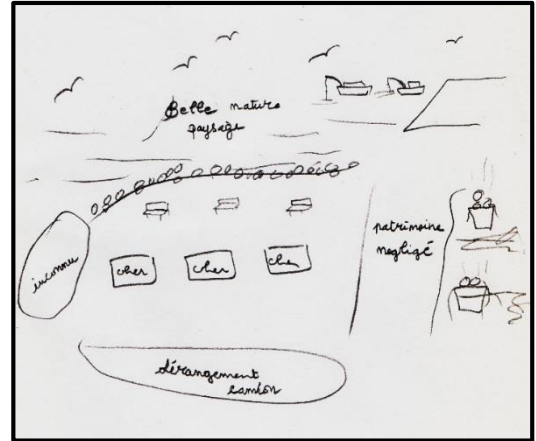 Belle nature
paysage
inconnu
cher
cher
che
patrimoine
negligé
dérangement
camion